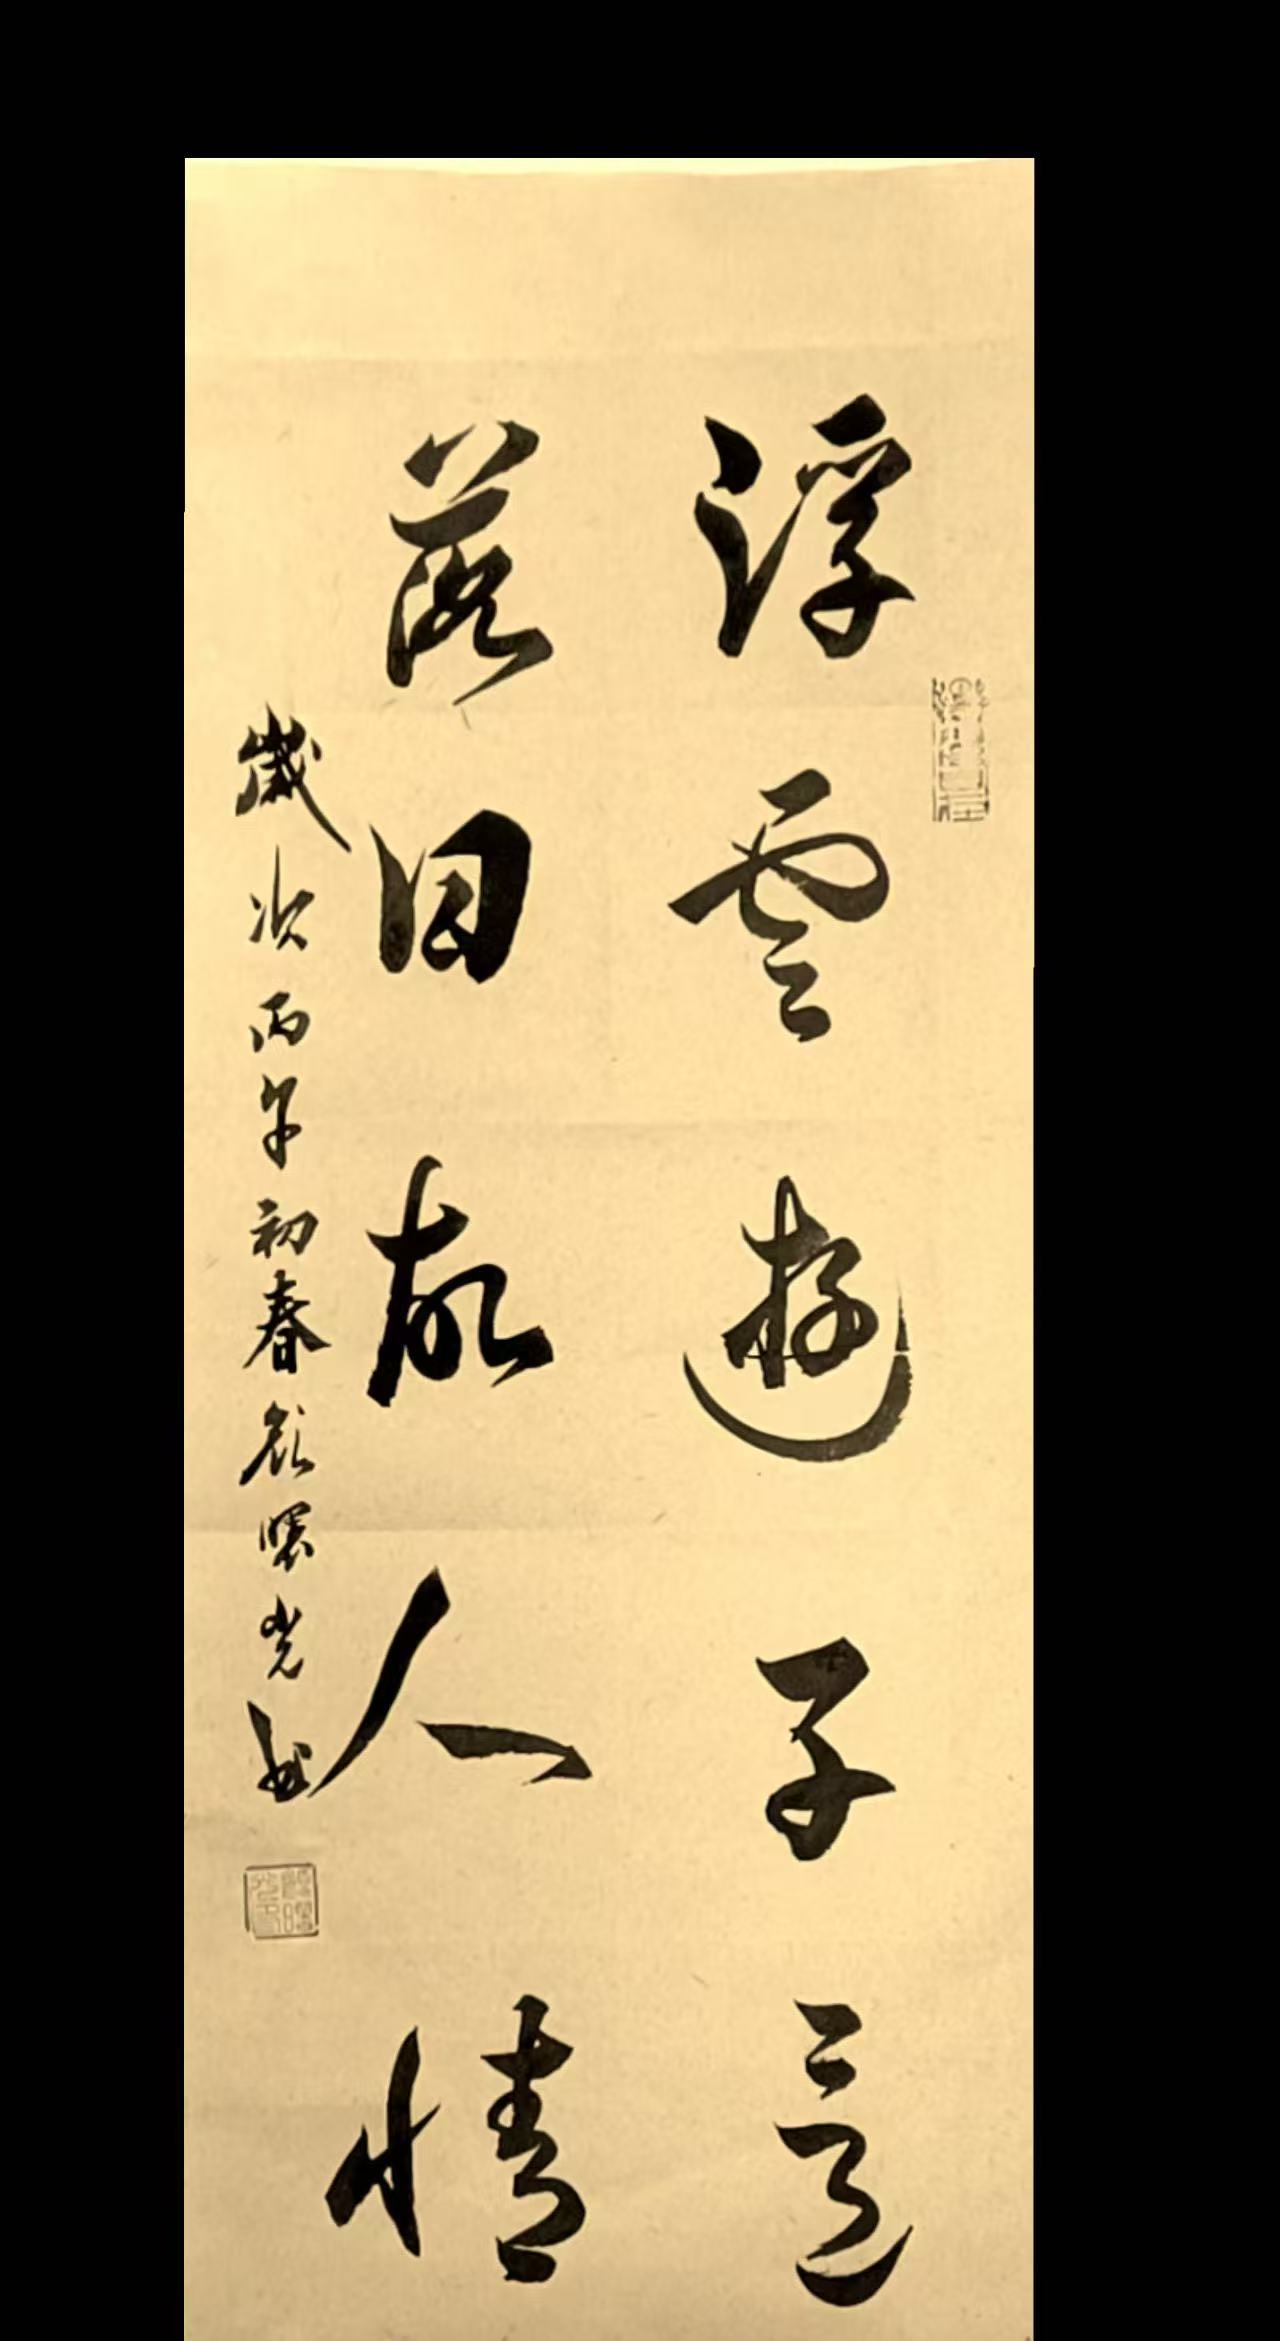 浮雲遊子意
落日故人情
歲次丙午初春 暉光書